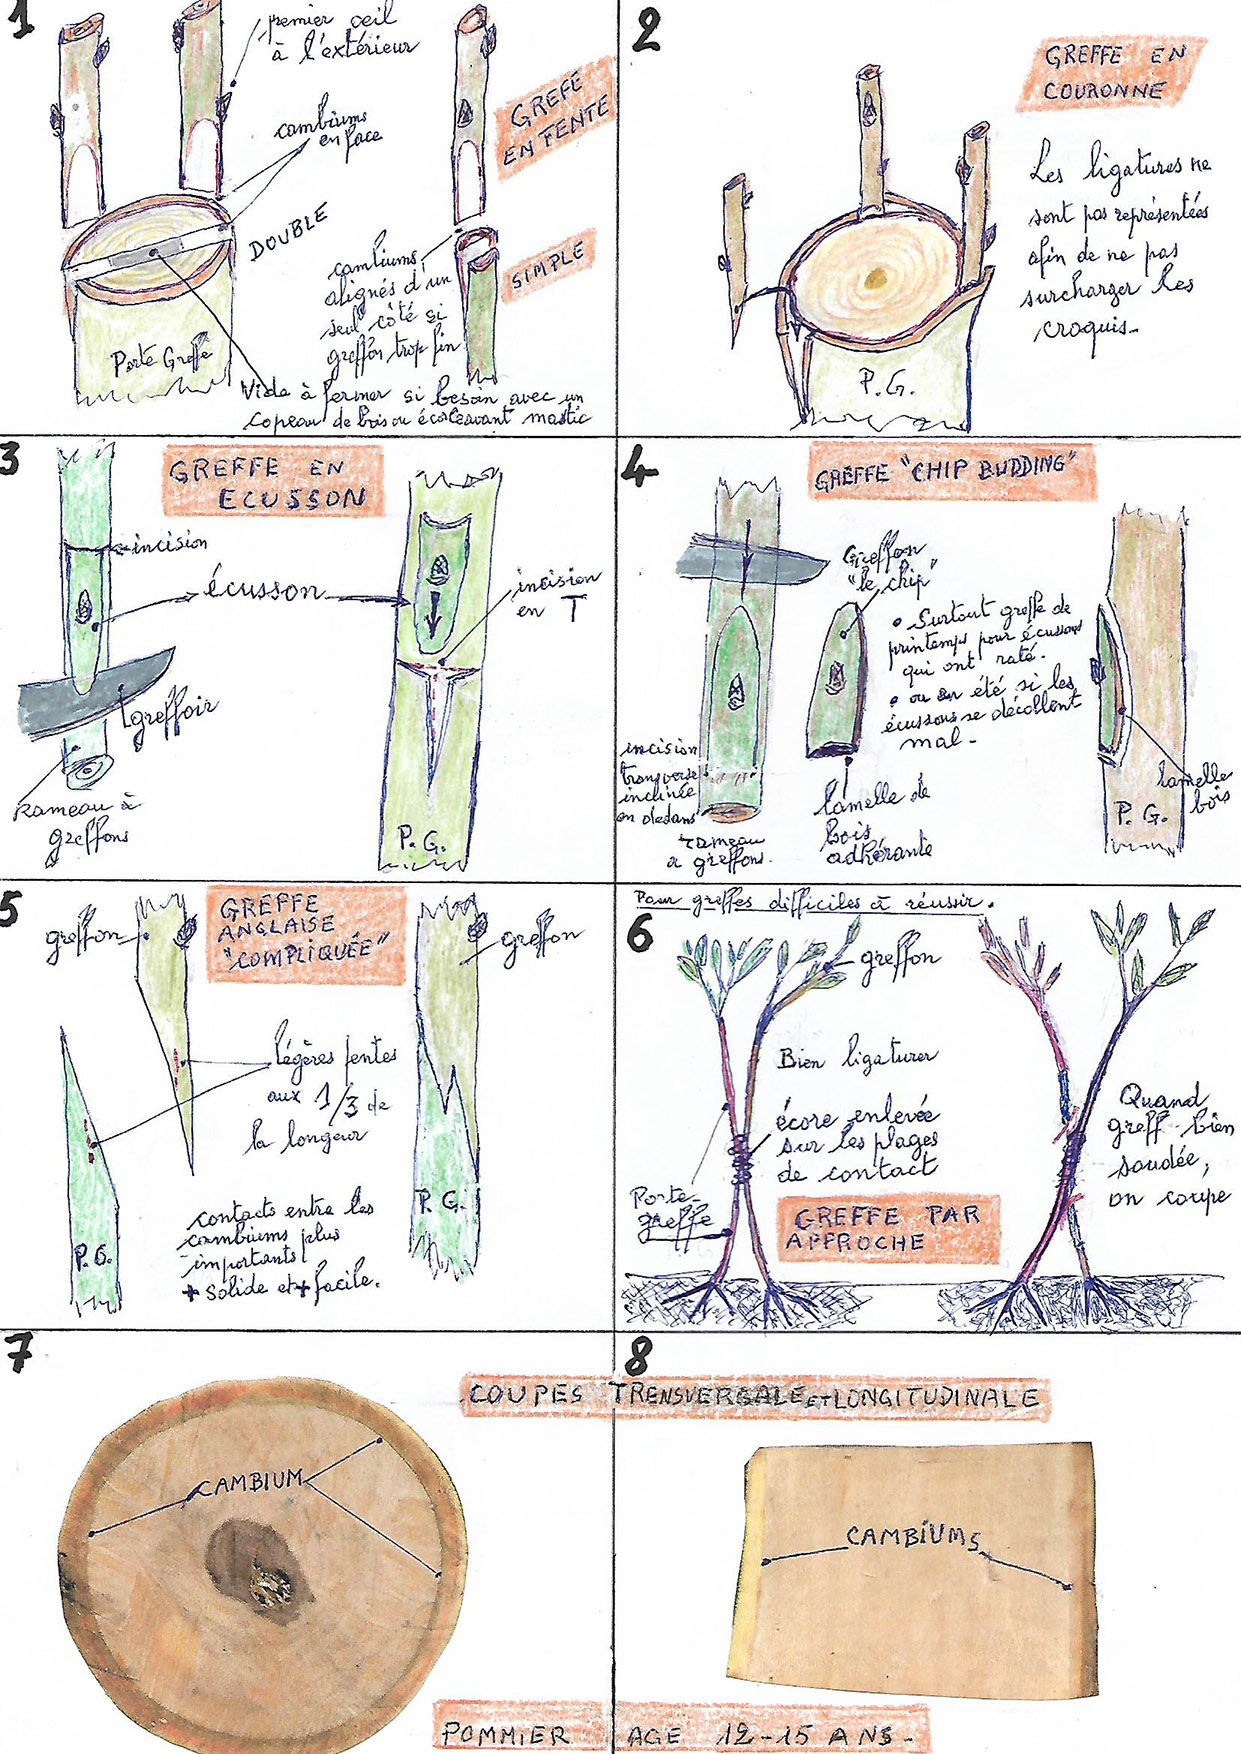 1
premier oeil
à l'extérieur
cambiums
en face
GREFE
EN FENTE
DOUBLE
SIMPLE
cambiums
alignés d'un
seul côté si
greffon trop fin
Porte Greffe
Vide à fermer si besoin avec un
copeau de bois ou écorce avant mastic
2
GREFFE EN
COURONNE
Les ligatures ne
sont pas représentées
afin de ne pas
surcharger les
croquis-
P.G.
3
GREFFE EN
ECUSSON
incision
écusson
incision
en T
greffoir
Rameau à
greffons
P.G.
4
GREFFE "CHIP BUDDING"
Greffon
"le chip"
• Surtout greffe de
printemps pour écussons
qui ont raté.
• ou en été si les
écussons se décollent
mal-
incision
transverse
inclinée
en dedans
rameau
à greffons.
lamelle de
bois
adhérante
lamelle
bois
P.G.
5
GREFFE
ANGLAISE
"COMPLIQUÉE"
greffon
greffon
légères fentes
aux 1/3 de
la longeur
contacts entre les
cambiums plus
importants
+ solide et + facile.
P.G.
P.G.
Pour greffes difficiles à réussir.
6
greffon
Bien ligaturer
écore enlevée
sur les plages
de contact
Porte-
greffe
GREFFE PAR
APPROCHE
Quand
greff- bien
soudée,
on coupe
7
8
COUPES TRENSVERSALE ET LONGITUDINALE
CAMBIUM
CAMBIUMS
POMMIER AGE 12-15 ANS-